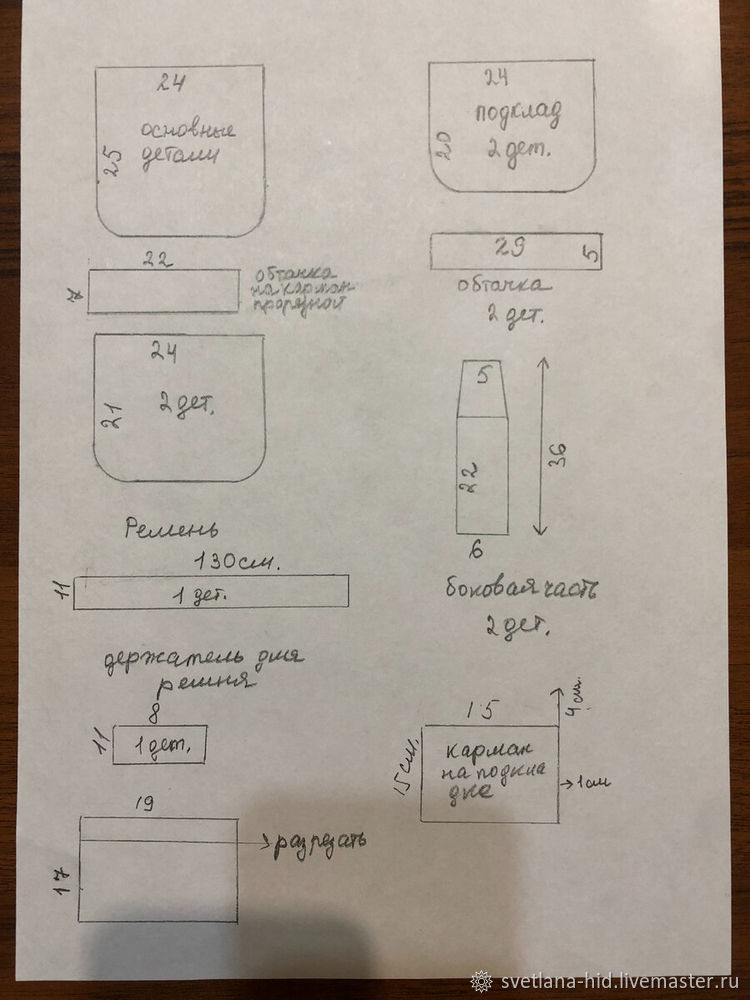 24
25
основные
детали
22
7
обтачка
на карман
прорезной
24
21
2 дет.
Ремень
130см.
11
1 дет.
держатель для
ремня
8
11
1 дет.
19
17
разрезать
24
20
подклад
2 дет.
29
5
обтачка
2 дет.
5
22
36
6
боковая часть
2 дет.
15
4 см.
15см.
карман
на подкла
дке
1см
svetlana-hid.livemaster.ru